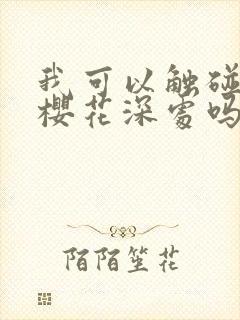 我可以触碰
樱花深处吗
陌陌笙花